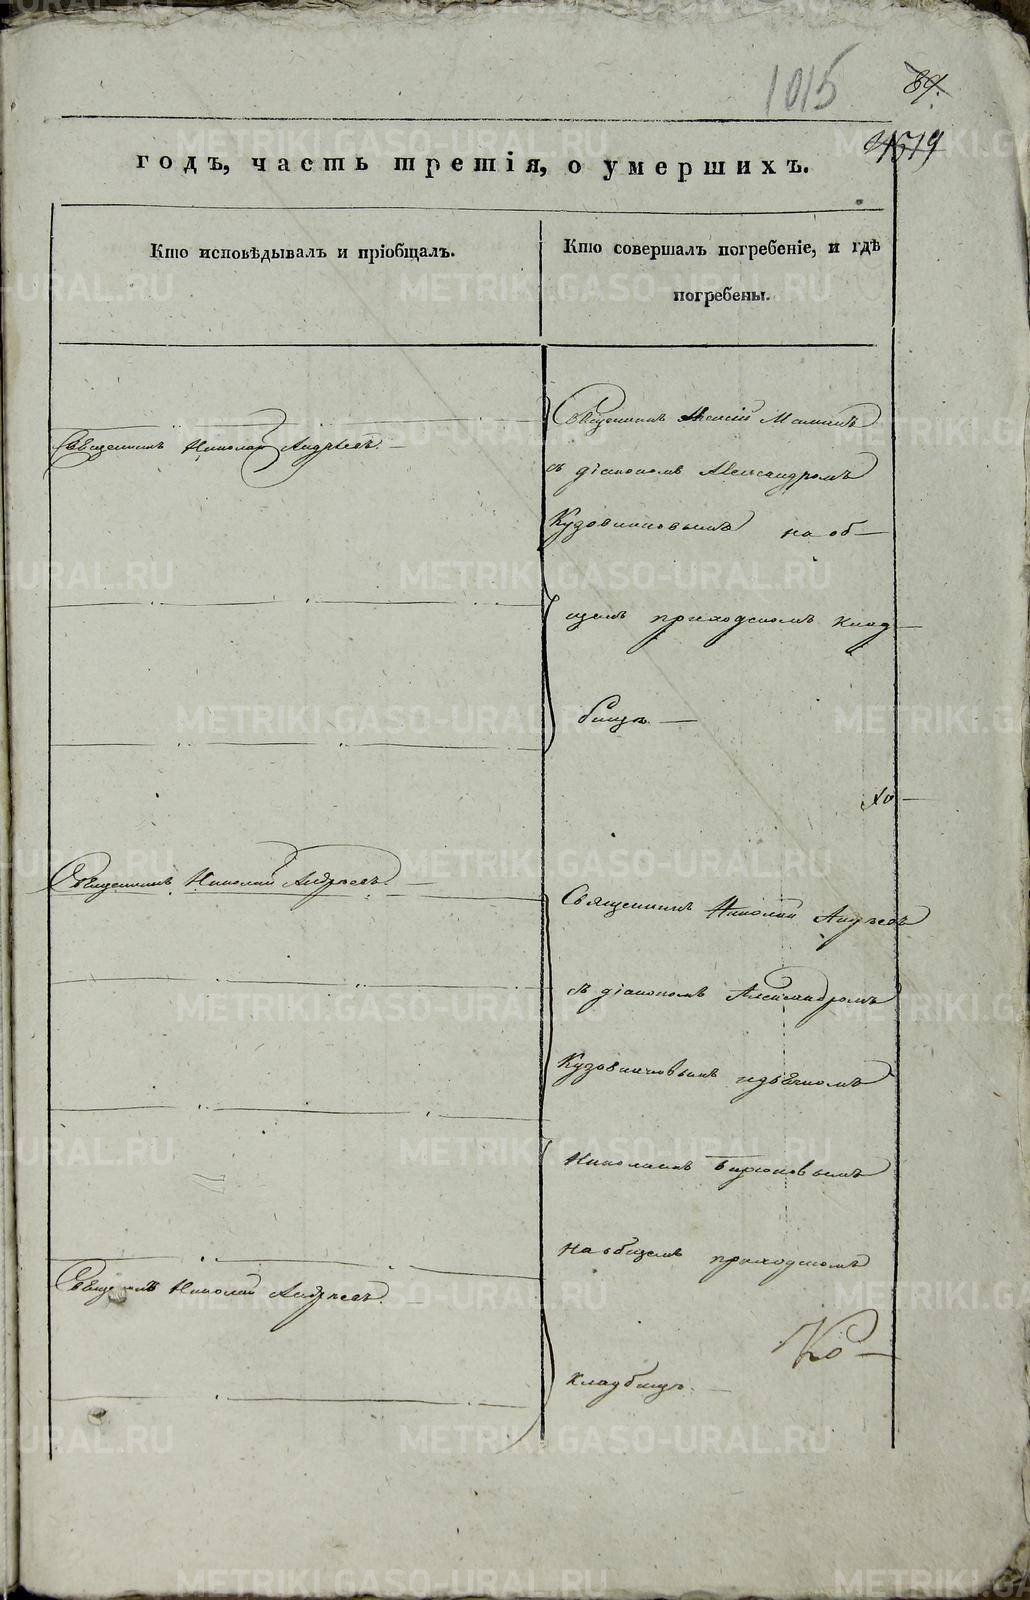 1015
89.
4519
годъ, часть третія, о умершихъ.
Кто исповѣдывалъ и пріобщалъ.
Кто совершалъ погребеніе, и гдѣ
погребены.
Священникъ Николай Андреевъ.
Священникъ Алексій Маминъ
съ діакономъ Александромъ
Кудовиковымъ на об-
щемъ приходскомъ клад-
бищѣ.
Священникъ Николай Андреевъ.
Священникъ Николай Андреевъ
съ діакономъ Александромъ
Кудовиковымъ и дьячкомъ
Николаемъ Бирюковымъ
на общемъ приходскомъ
Священникъ Николай Андреевъ.
кладбищѣ.
METRIKI.GASO-URAL.RU